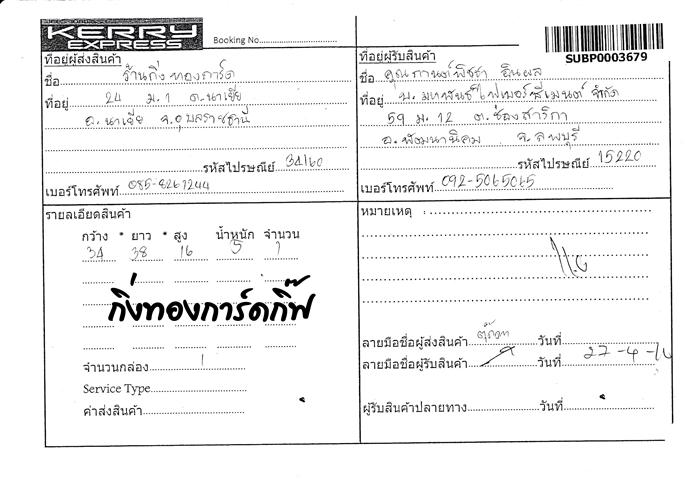 KERRY
EXPRESS
Booking No.
SUBP0003679
ที่อยู่ผู้ส่งสินค้า
ชื่อ ร้านกิ่งทองการ์ด
ที่อยู่ 24 ม.1 ต.นาเยีย
อ.นาเยีย จ.อุบลราชธานี
รหัสไปรษณีย์ 34160
เบอร์โทรศัพท์ 085-8267244
ที่อยู่ผู้รับสินค้า
ชื่อ คุณกานต์พิชชา อินผล
ที่อยู่ บ. มหพันธ์ไฟเบอร์ซีเมนต์ จำกัด
59 ม.12 ต.ช่องสาริกา
อ.พัฒนานิคม จ.ลพบุรี
รหัสไปรษณีย์ 15220
เบอร์โทรศัพท์ 092-5065065
รายละเอียดสินค้า
กว้าง * ยาว * สูง น้ำหนัก จำนวน
34 38 16 5 1
กิ่งทองการ์ดกิ๊ฟ
จำนวนกล่อง 1
Service Type
ค่าส่งสินค้า
หมายเหตุ :
ลายมือชื่อผู้ส่งสินค้า วันที่
ลายมือชื่อผู้รับสินค้า วันที่ 27-4-
ผู้รับสินค้าปลายทาง วันที่